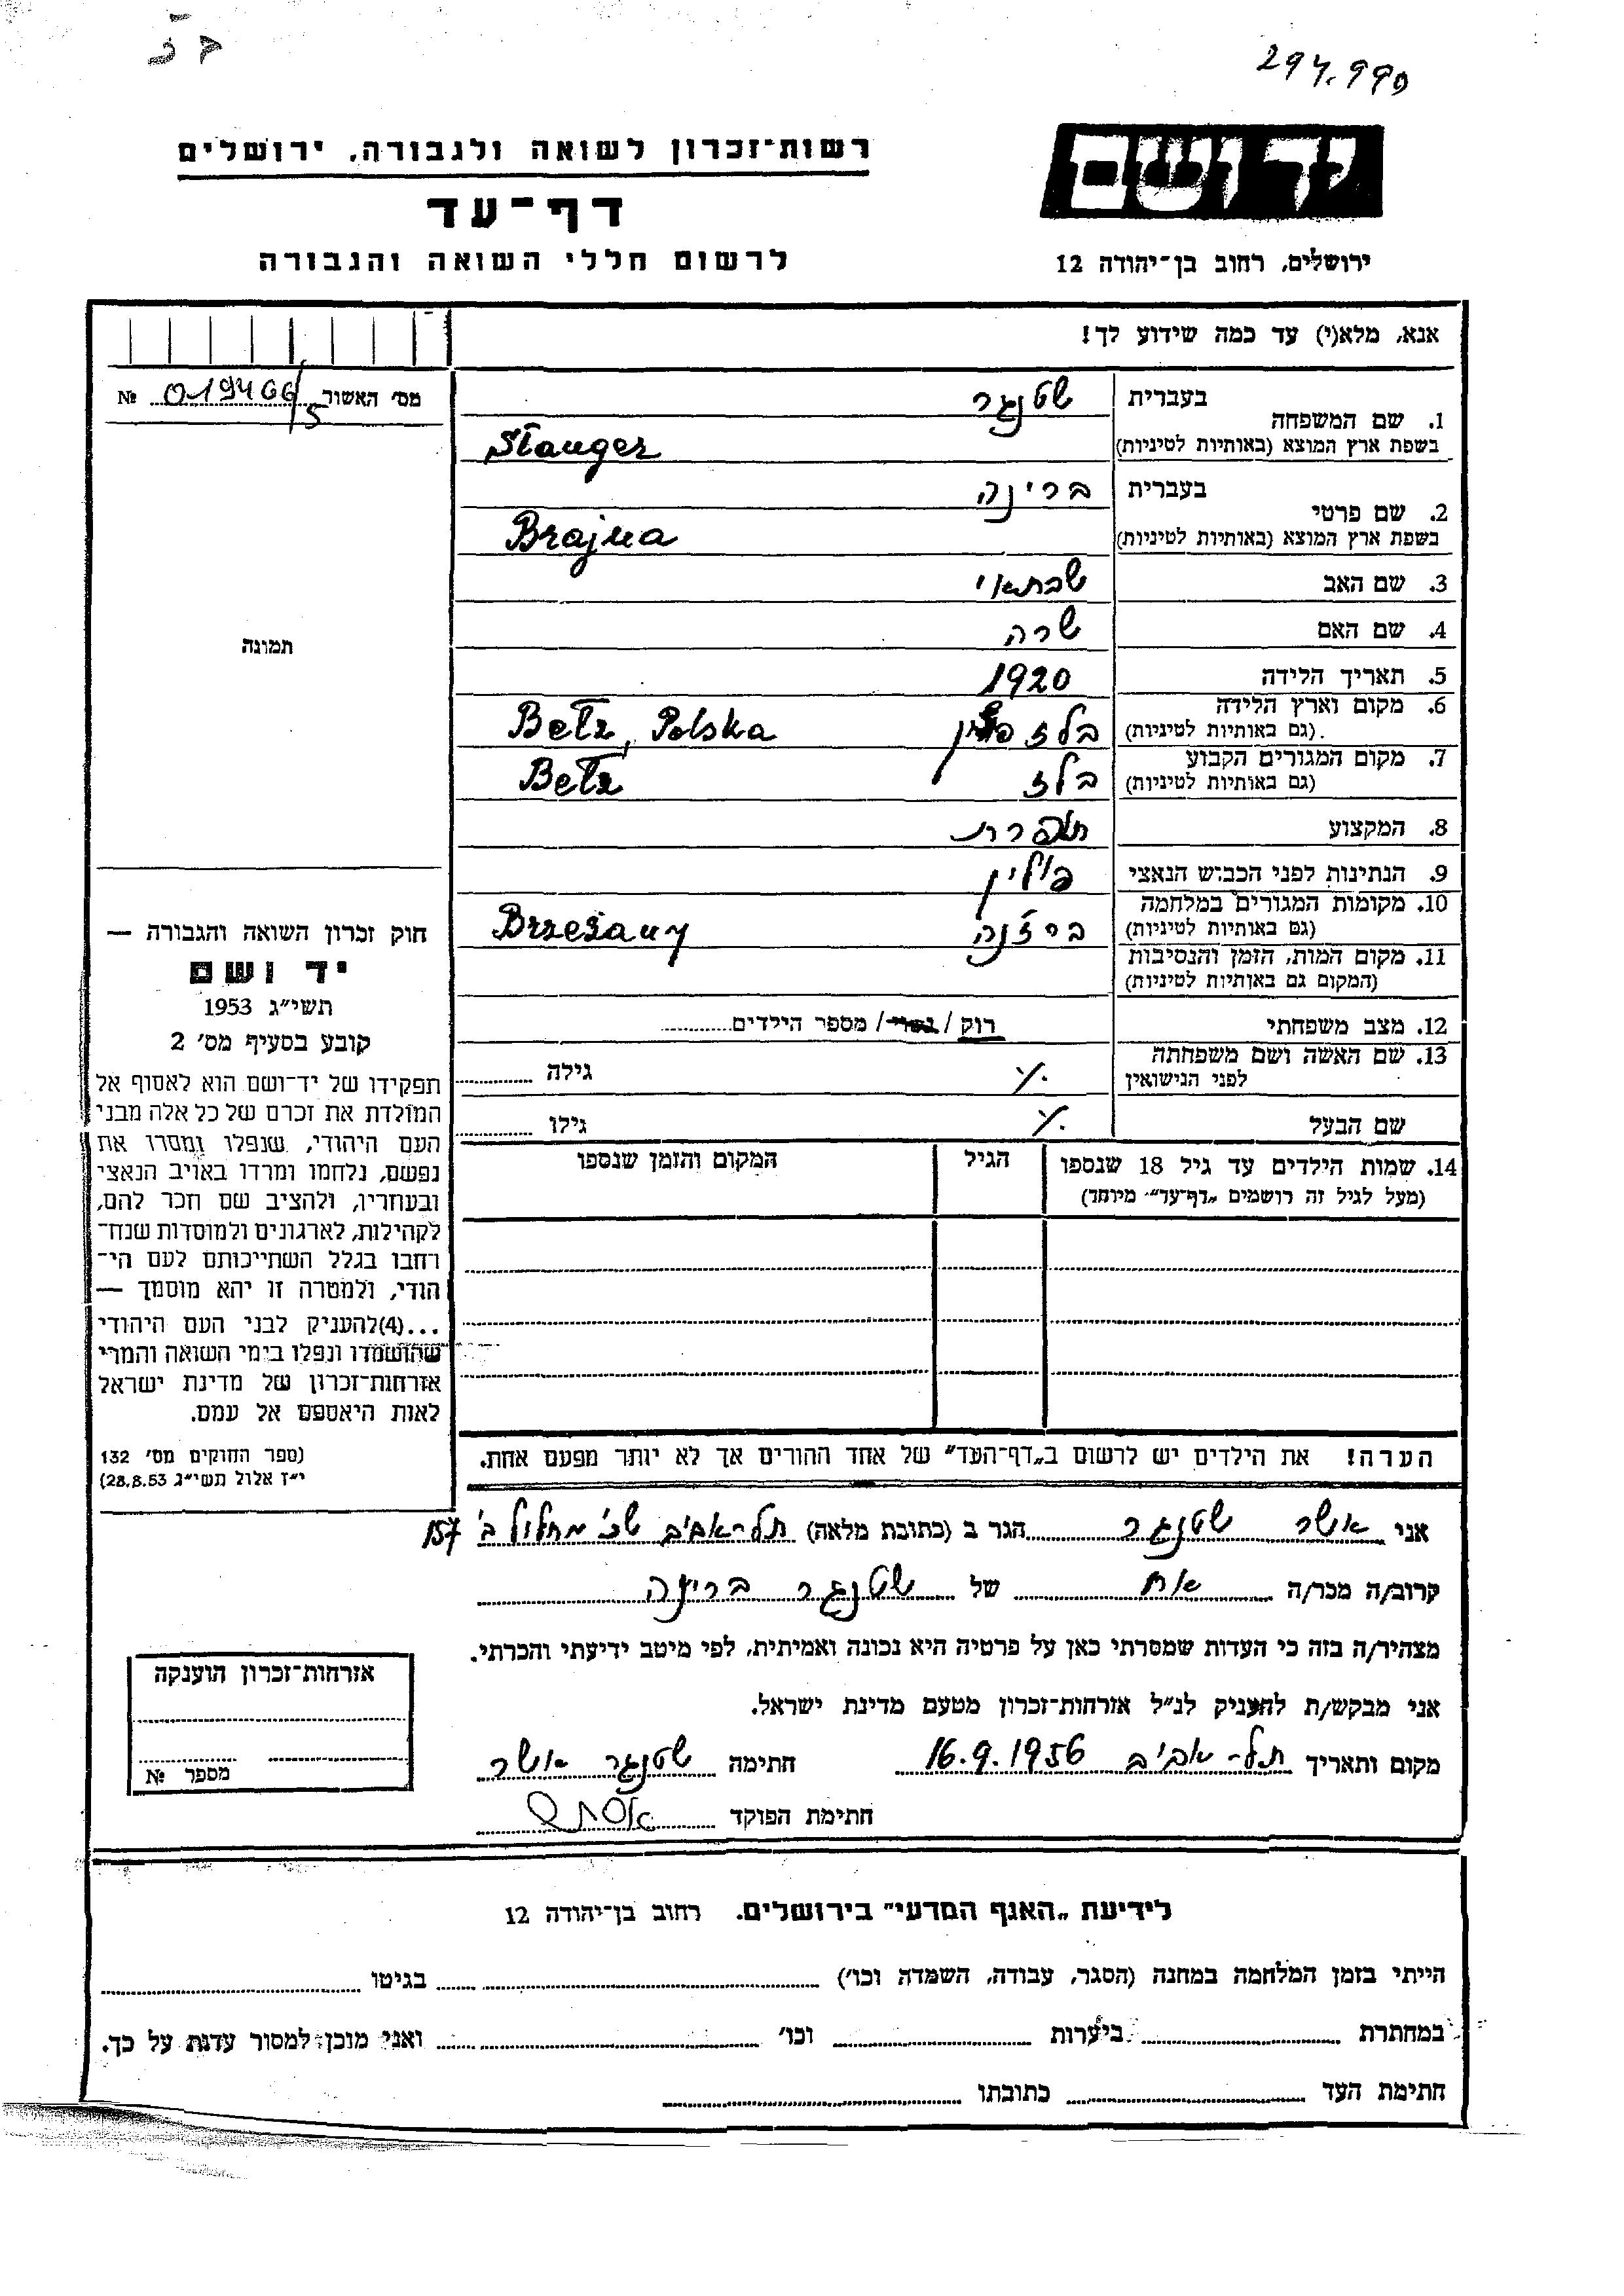 294.990
רשות־זכרון לשואה ולגבורה, ירושלים
דף־עד
לרשום חללי השואה והגבורה
יד ושם
ירושלים, רחוב בן־יהודה 12
אנא, מלא(י) עד כמה שידוע לך!
מס׳ האשור 019466/5 №
1. שם המשפחה בעברית שטנגר
בשפת ארץ המוצא (באותיות לטיניות) Stanger
2. שם פרטי בעברית בריינה
בשפת ארץ המוצא (באותיות לטיניות) Brajna
3. שם האב שבתאי
4. שם האם שרה
5. תאריך הלידה 1920
6. מקום וארץ הלידה (גם באותיות לטיניות) בלז פולין Bełz, Polska
7. מקום המגורים הקבוע (גם באותיות לטיניות) בלז Bełz
8. המקצוע תופרת
9. הנתינות לפני הכבוש הנאצי פולין
10. מקומות המגורים במלחמה (גם באותיות לטיניות) ברז'נה Brzeżany
11. מקום המות, הזמן והנסיבות (המקום גם באותיות לטיניות)
12. מצב משפחתי רוק / נשוי / מספר הילדים
13. שם האשה ושם משפחתה לפני הנישואין ./. גילה
שם הבעל ./. גילו
14. שמות הילדים עד גיל 18 שנספו (מעל לגיל זה רושמים „דף־עד״ מיוחד)
הגיל
המקום והזמן שנספו
תמונה
חוק זכרון השואה והגבורה —
יד ושם
תשי״ג 1953
קובע בסעיף מס׳ 2
תפקידו של יד־ושם הוא לאסוף אל
המולדת את זכרם של כל אלה מבני
העם היהודי, שנפלו ומסרו את
נפשם, נלחמו ומרדו באויב הנאצי
ובעוזריו, ולהציב שם וזכר להם,
לקהילות, לארגונים ולמוסדות שנח־
רחבו בגלל השתייכותם לעם הי־
הודי, ולמטרה זו יהא מוסמך —
...(4)להעניק לבני העם היהודי
שהושמדו ונפלו בימי השואה והמרי
אזרחות־זכרון של מדינת ישראל
לאות היאספם אל עמם.
(ספר החוקים מס׳ 132
י״ז אלול תשי״ג 28.8.53)
הערה! את הילדים יש לרשום ב„דף־העד״ של אחד ההורים אך לא יותר מפעם אחת.
אני אשר שטנגר הגר ב (כתובת מלאה) תל-אביב שכ' מחלול ב' 157
קרוב/ה מכר/ה אח של שטנגר בריינה
מצהיר/ה בזה כי העדות שמסרתי כאן על פרטיה היא נכונה ואמיתית, לפי מיטב ידיעתי והכרתי.
אני מבקש/ת להעניק לנ״ל אזרחות־זכרון מטעם מדינת ישראל.
מקום ותאריך תל-אביב 16.9.1956 חתימה שטנגר אשר
חתימת הפוקד
אזרחות־זכרון הוענקה
מספר №
לידיעת „האגף המדעי״ בירושלים, רחוב בן־יהודה 12
הייתי בזמן המלחמה במחנה (הסגר, עבודה, השמדה וכו׳) בגיטו
במחתרת ביערות וכו׳ ואני מוכן למסור עדות על כך.
חתימת העד כתובתו